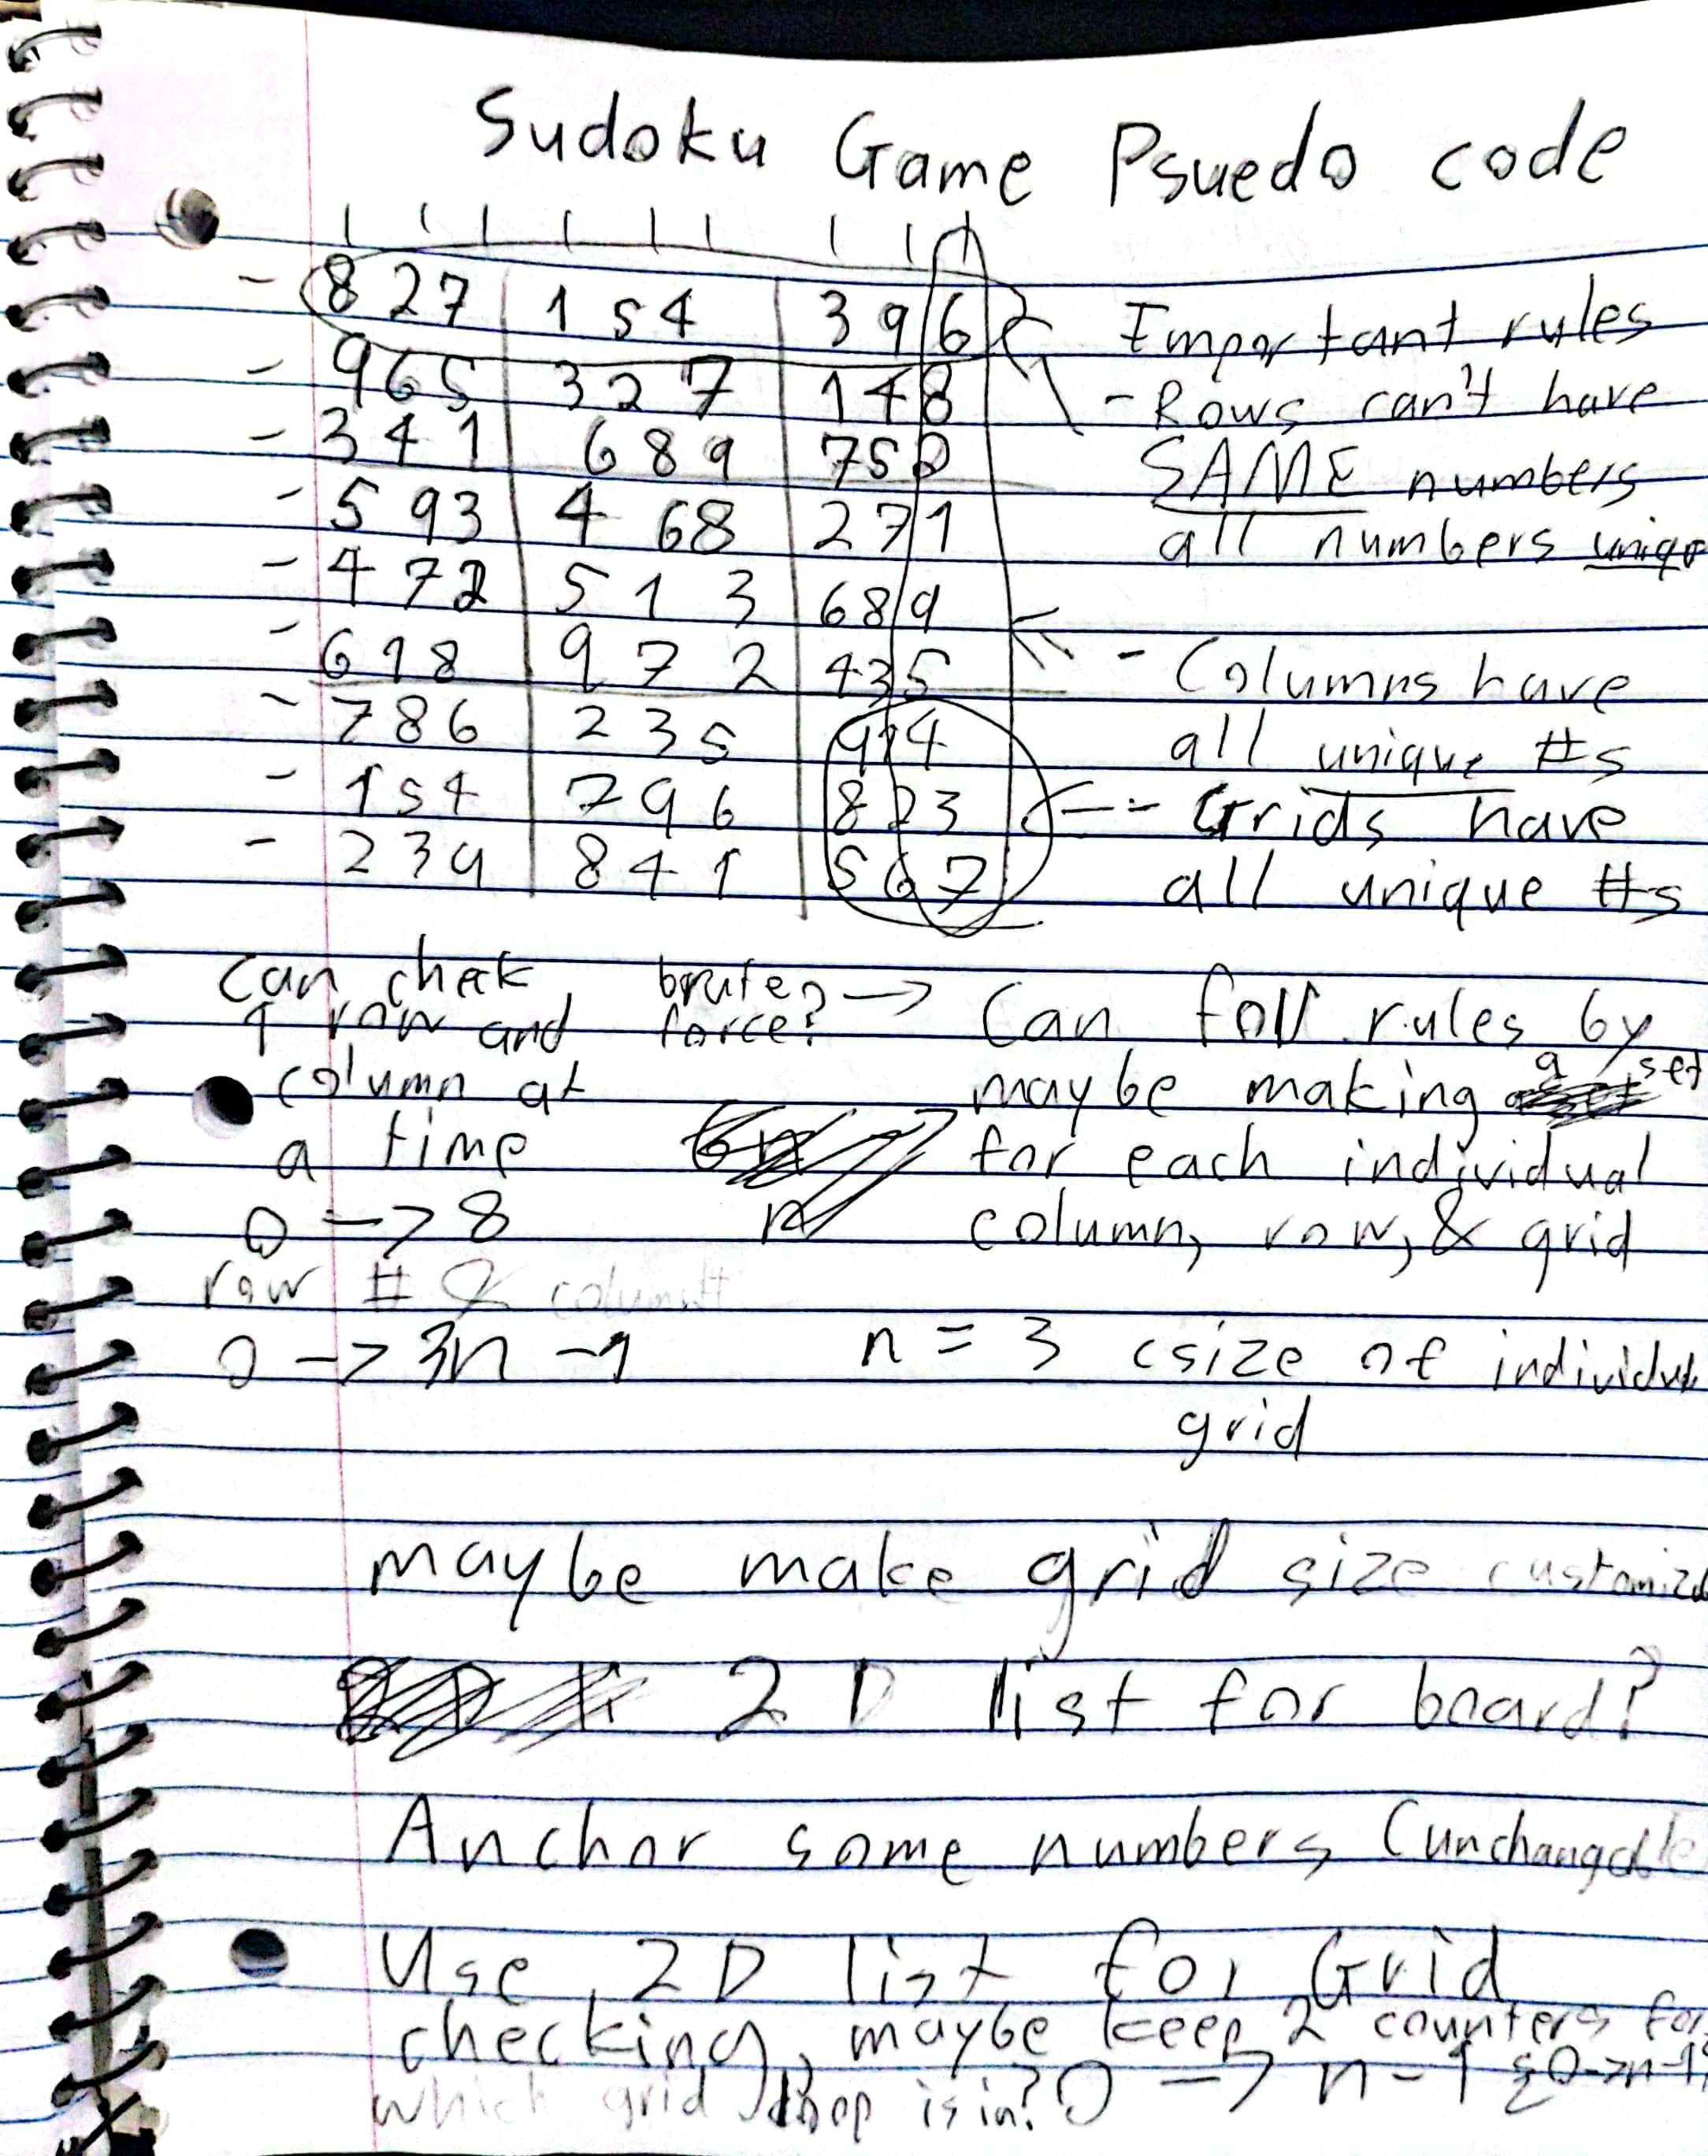 Sudoku Game Psuedo code
8 2 7 1 5 4 3 9 6
9 6 5 3 2 7 1 4 8
3 4 1 6 8 9 7 5 2
5 9 3 4 6 8 2 7 1
4 7 2 5 1 3 6 8 9
6 1 8 9 7 2 4 3 5
7 8 6 2 3 5 9 1 4
1 5 4 7 9 6 8 2 3
2 3 9 8 4 1 5 6 7
Important rules
- Rows can't have
SAME numbers
all numbers
- Columns have
all unique #s
- Grids have
all unique #s
can check
1 row and
column at
a time
0 -> 8
row # & column#
0 -> 3n - 1
brute
force?
-> Can foll rules by
maybe making a set
for each individual
column, row, & grid
n = 3 (size of
grid
maybe make grid size
2 D list for board?
Anchor some numbers (unchangable
Use 2D list for Grid
checking, maybe keep 2 counters for
which grid loop is in? 0 -> n - 1 & 0->n-1